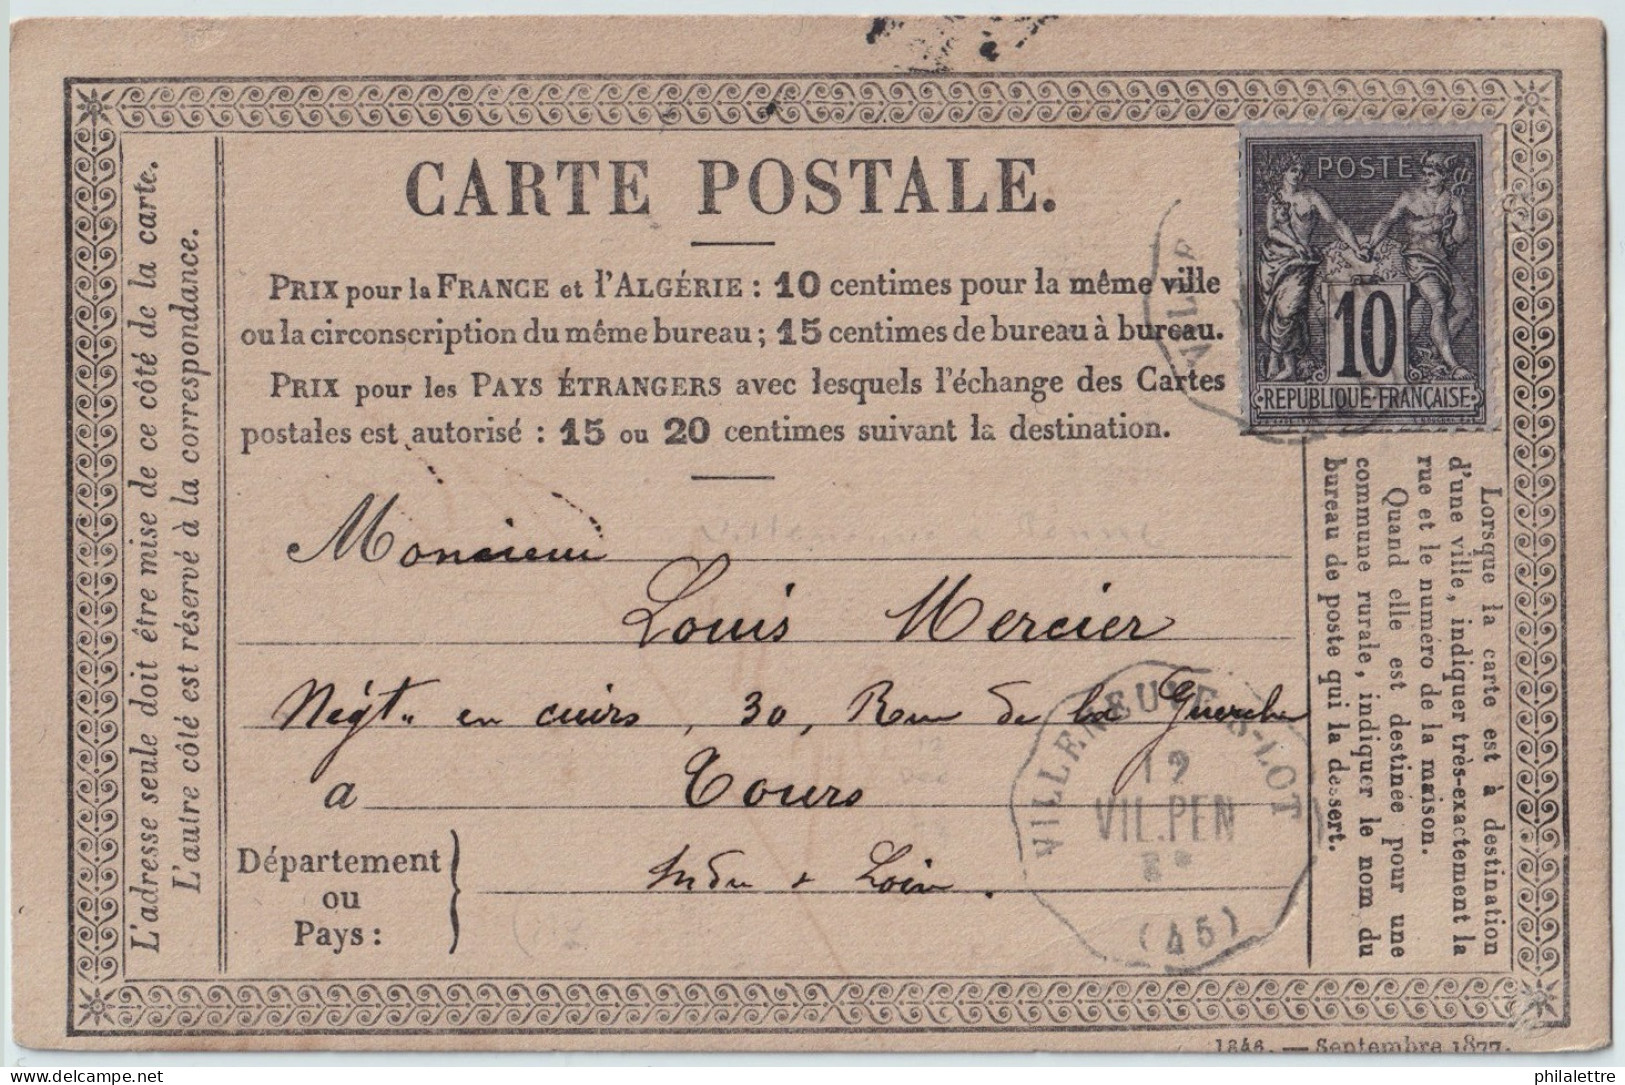 CARTE POSTALE.
PRIX pour la FRANCE et l'ALGÉRIE : 10 centimes pour la même ville
ou la circonscription du même bureau ; 15 centimes de bureau à bureau.
PRIX pour les PAYS ÉTRANGERS avec lesquels l'échange des Cartes
postales est autorisé : 15 ou 20 centimes suivant la destination.
POSTE
10
REPUBLIQUE FRANÇAISE
L'adresse seule doit être mise de ce côté de la carte.
L'autre côté est réservé à la correspondance.
Monsieur
Louis Mercier
Négt. en cuirs, 30, Rue de la Guerche
a Tours
Département
ou
Pays :
Indre & Loire.
VILLENEUVE-S-LOT
19
VIL.PEN
(45)
Lorsque la carte est à destination
d'une ville, indiquer très-exactement la
rue et le numéro de la maison.
Quand elle est destinée pour une
commune rurale, indiquer le nom du
bureau de poste qui la dessert.
1846. — Septembre 1877.
delcampe.net
philalettre